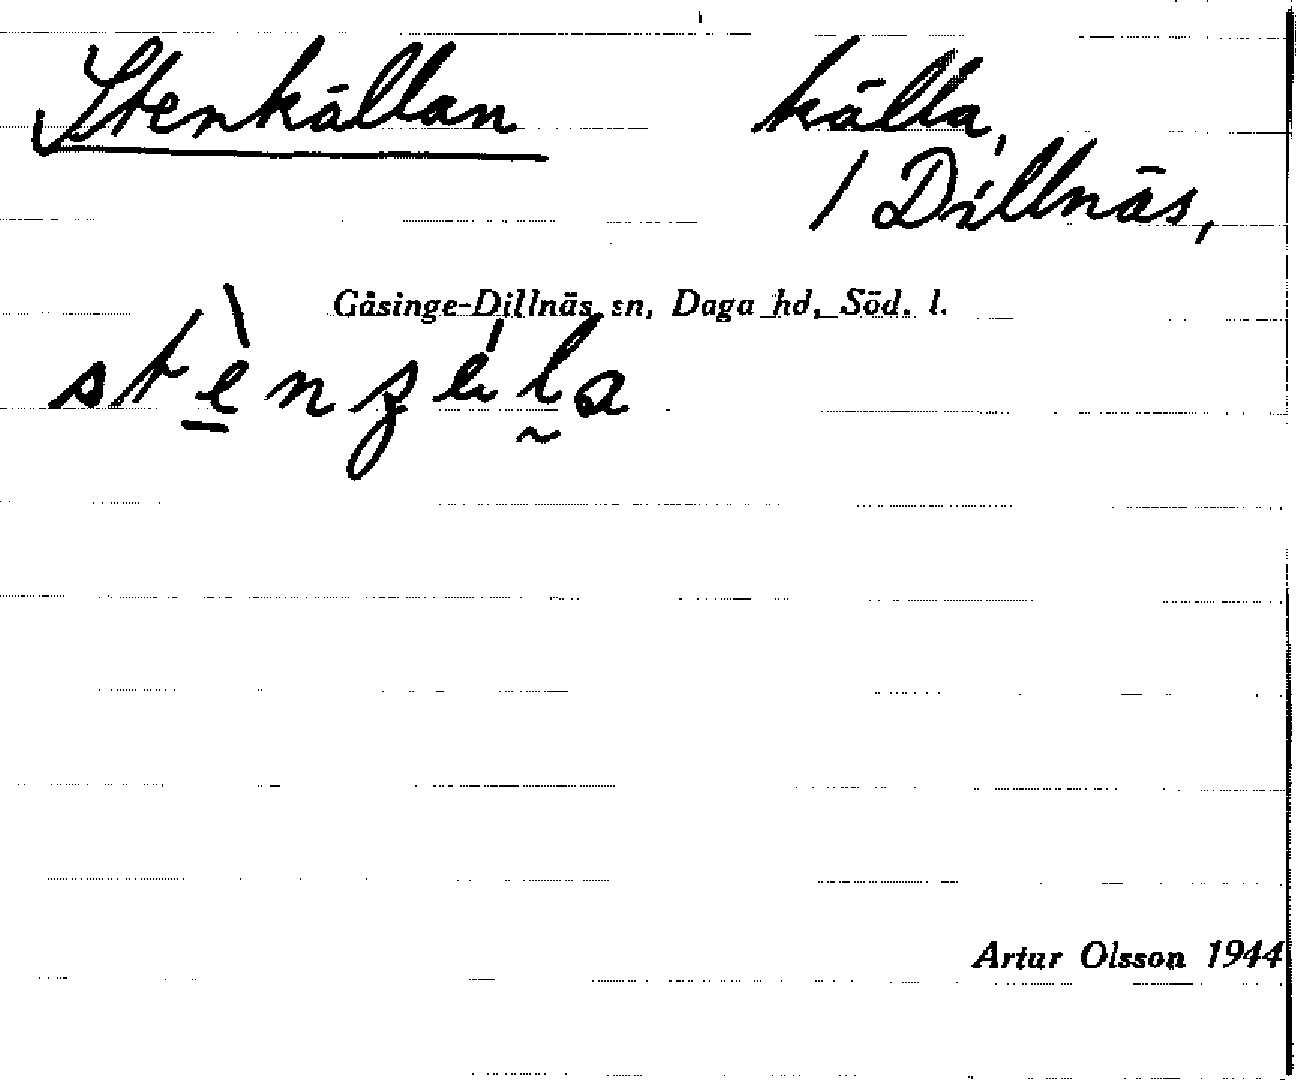 Stenkällan källa,
/ Dillnäs,
Gåsinge-Dillnäs sn, Daga hd, Söd. l.
Artur Olsson 1944